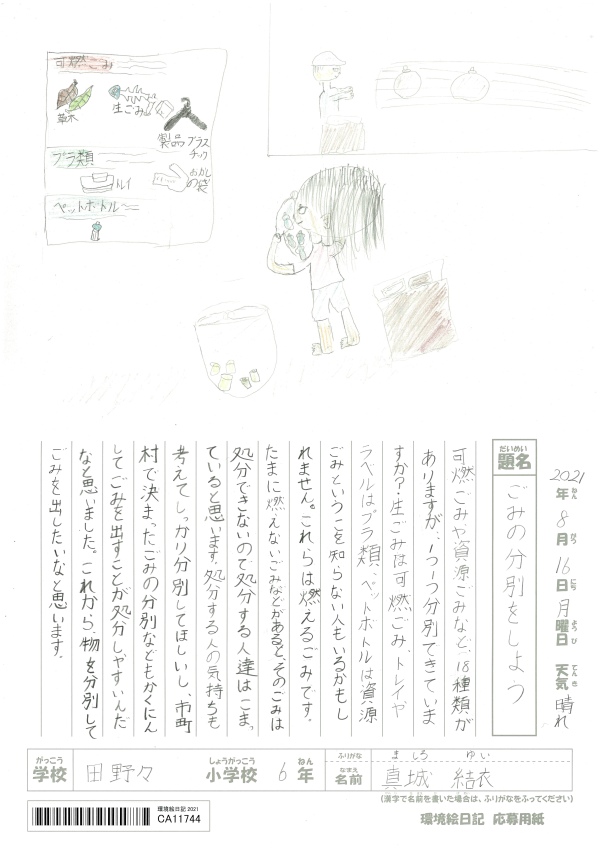 可燃ごみ
草木
生ごみ
製品プラスチック
プラ類
トレイ
おかしの袋
ペットボトル
2021年 8月 16日 月曜日 天気 晴れ
ねん がつ にち ようび てんき
だいめい
題名
ごみの分別をしよう
可燃ごみや資源ごみなど、18種類が
ありますが、1つ1つ分別できていま
すか?生ごみは可燃ごみ、トレイや
ラベルはプラ類、ペットボトルは資源
ごみということを知らない人もいるかもし
れません。これらは燃えるごみです。
たまに燃えないごみなどがあると、そのごみは
処分できないので処分する人達はこまっ
ていると思います。処分する人の気持ちも
考えてしっかり分別してほしいし、市町
村で決まったごみの分別などもかくにん
してごみを出すことが処分しやすいんだ
なと思いました。これから、物を分別して
ごみを出したいなと思います。
がっこう
学校
田野々
しょうがっこう
小学校
6
ねん
年
ふりがな
ましろ ゆい
なまえ
名前
真城 結衣
(漢字で名前を書いた場合は、ふりがなをふってください)
環境絵日記 2021
CA11744
環境絵日記 応募用紙